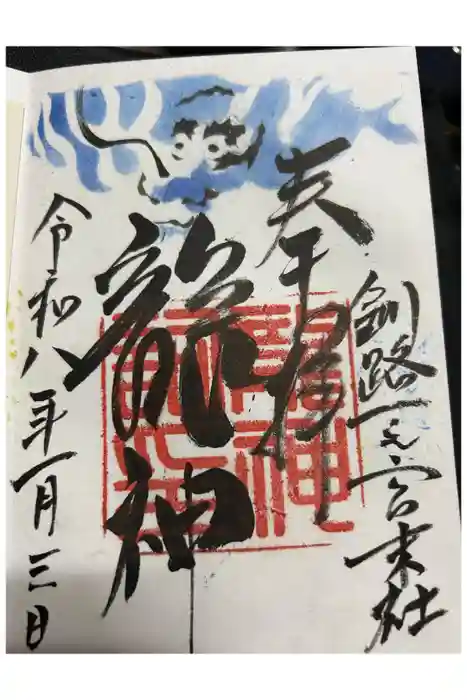 釧路一之宮末社
奉拝
龍神
令和八年一月三日